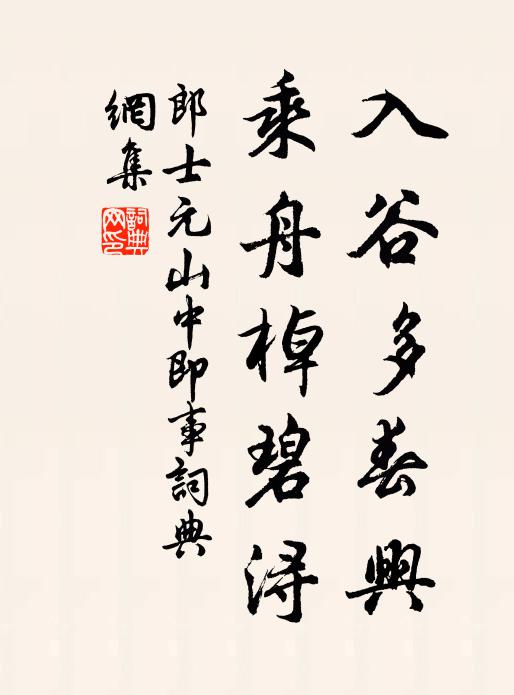 入谷多春興
乘舟棹碧潯
郎士元山中即事詞典
網集
詞典網印